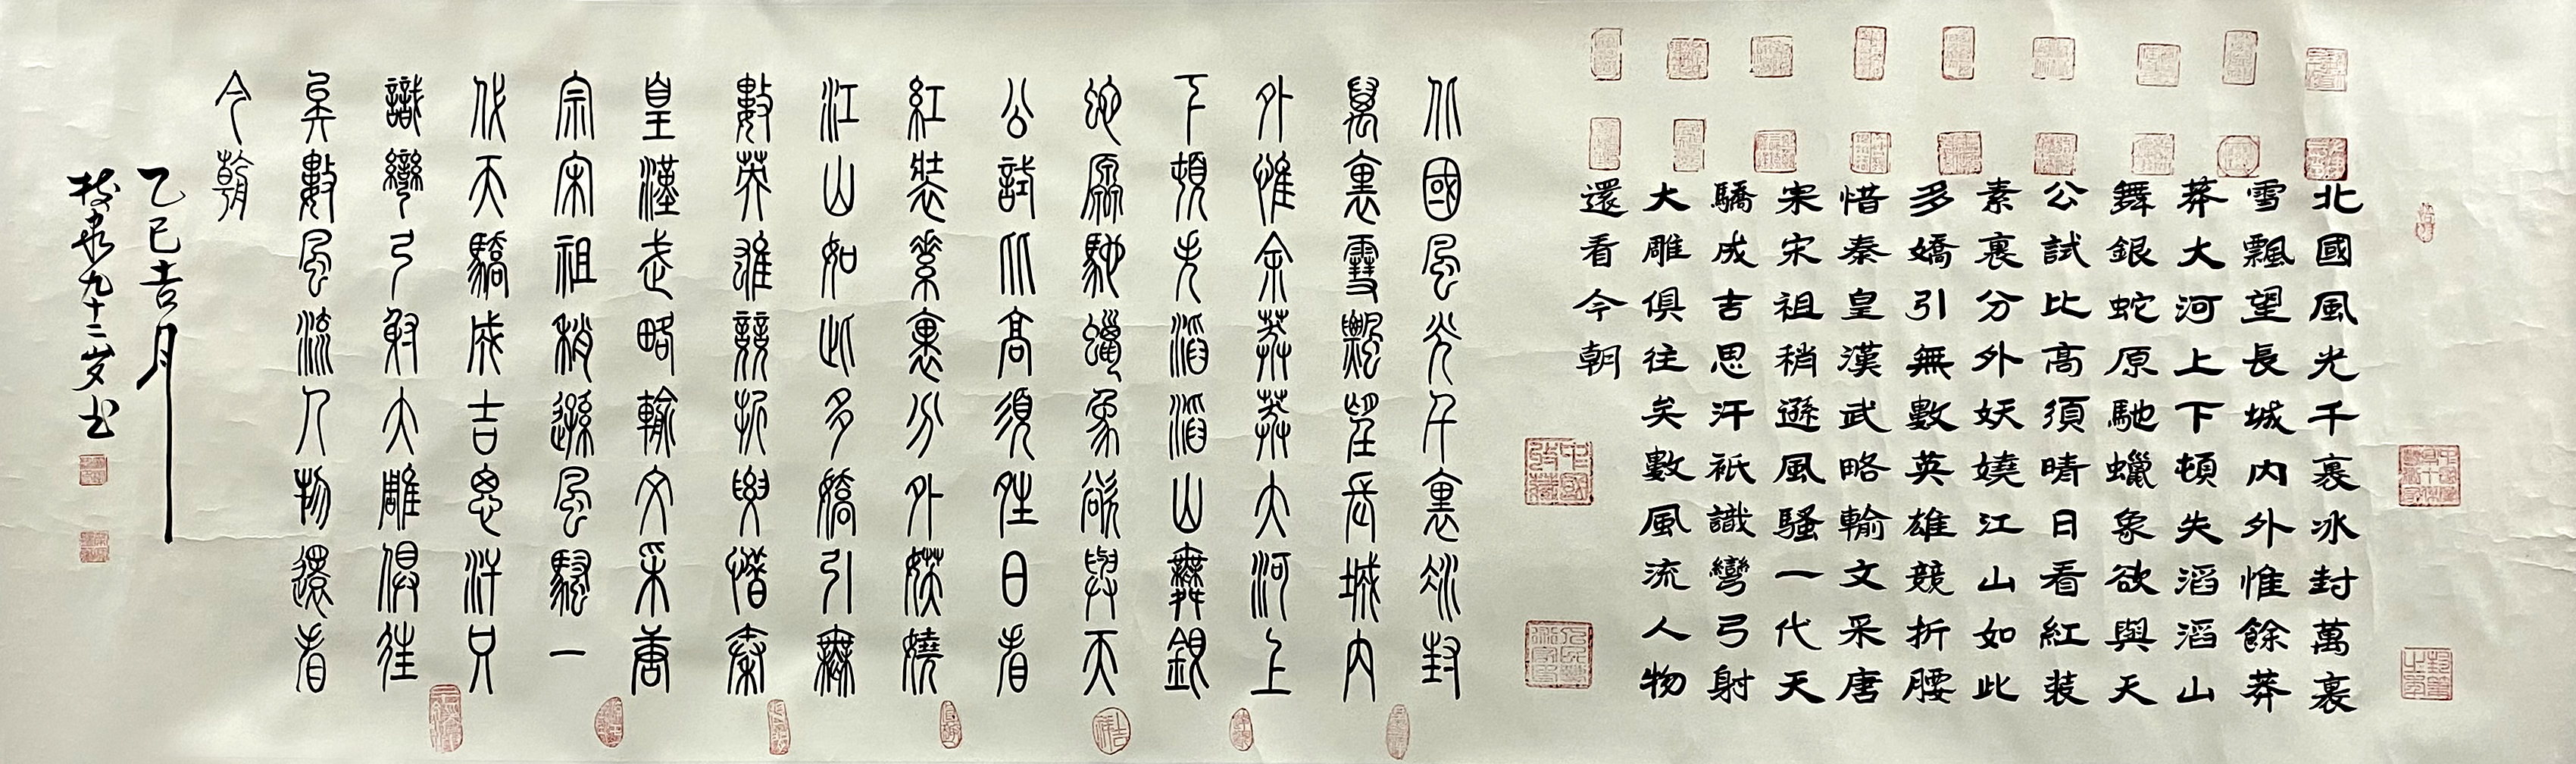 北國風光千裏冰封萬裏
雪飄望長城內外惟餘莽
莽大河上下頓失滔滔山
舞銀蛇原馳蠟象欲與天
公試比高須晴日看紅裝
素裹分外妖嬈江山如此
多嬌引無數英雄競折腰
惜秦皇漢武略輸文采唐
宗宋祖稍遜風騷一代天
驕成吉思汗祇識彎弓射
大雕俱往矣數風流人物
還看今朝
北國風光千裏冰封
萬裏雪飄望長城內
外惟余莽莽大河上
下頓失滔滔山舞銀
蛇原馳蠟象欲與天
公試比高須晴日看
紅裝素裹分外妖嬈
江山如此多嬌引無
數英雄競折腰惜秦
皇漢武略輸文采唐
宗宋祖稍遜風騷一
代天驕成吉思汗只
識彎弓射大雕俱往
矣數風流人物還看
今朝
乙巳吉月
九十二岁书